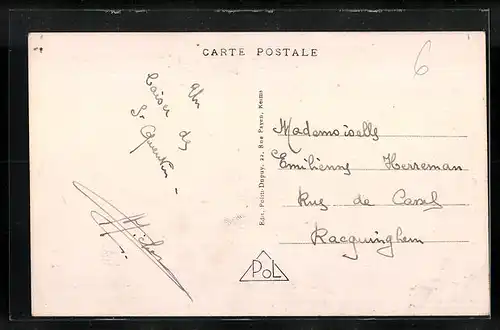 CARTE POSTALE
6
Un
baiser de
St Quentin
Edit. Pol
Rue Payen, Reims
Mademoiselle
Emilienne Herreman
Rue de Cassel
Racquinghem
POL